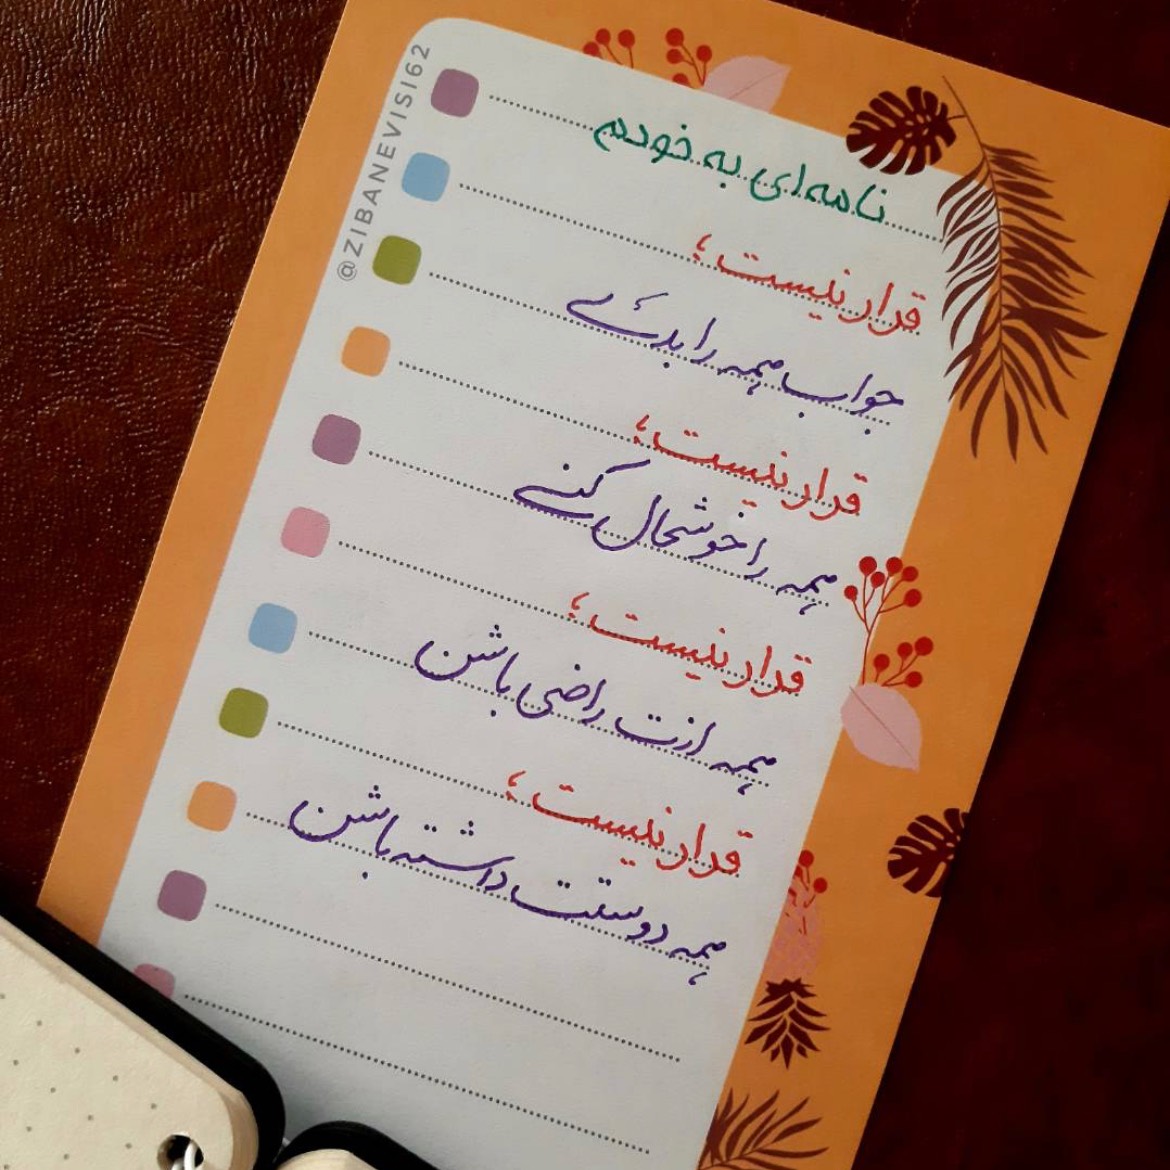 @ZIBANEVISI62
نامه‌ای به خودم
قرار نیست؛
جواب همه را بدی
قرار نیست؛
همه را خوشحال کنی
قرار نیست؛
همه ازت راضی باشن
قرار نیست؛
همه دوستت داشته باشن